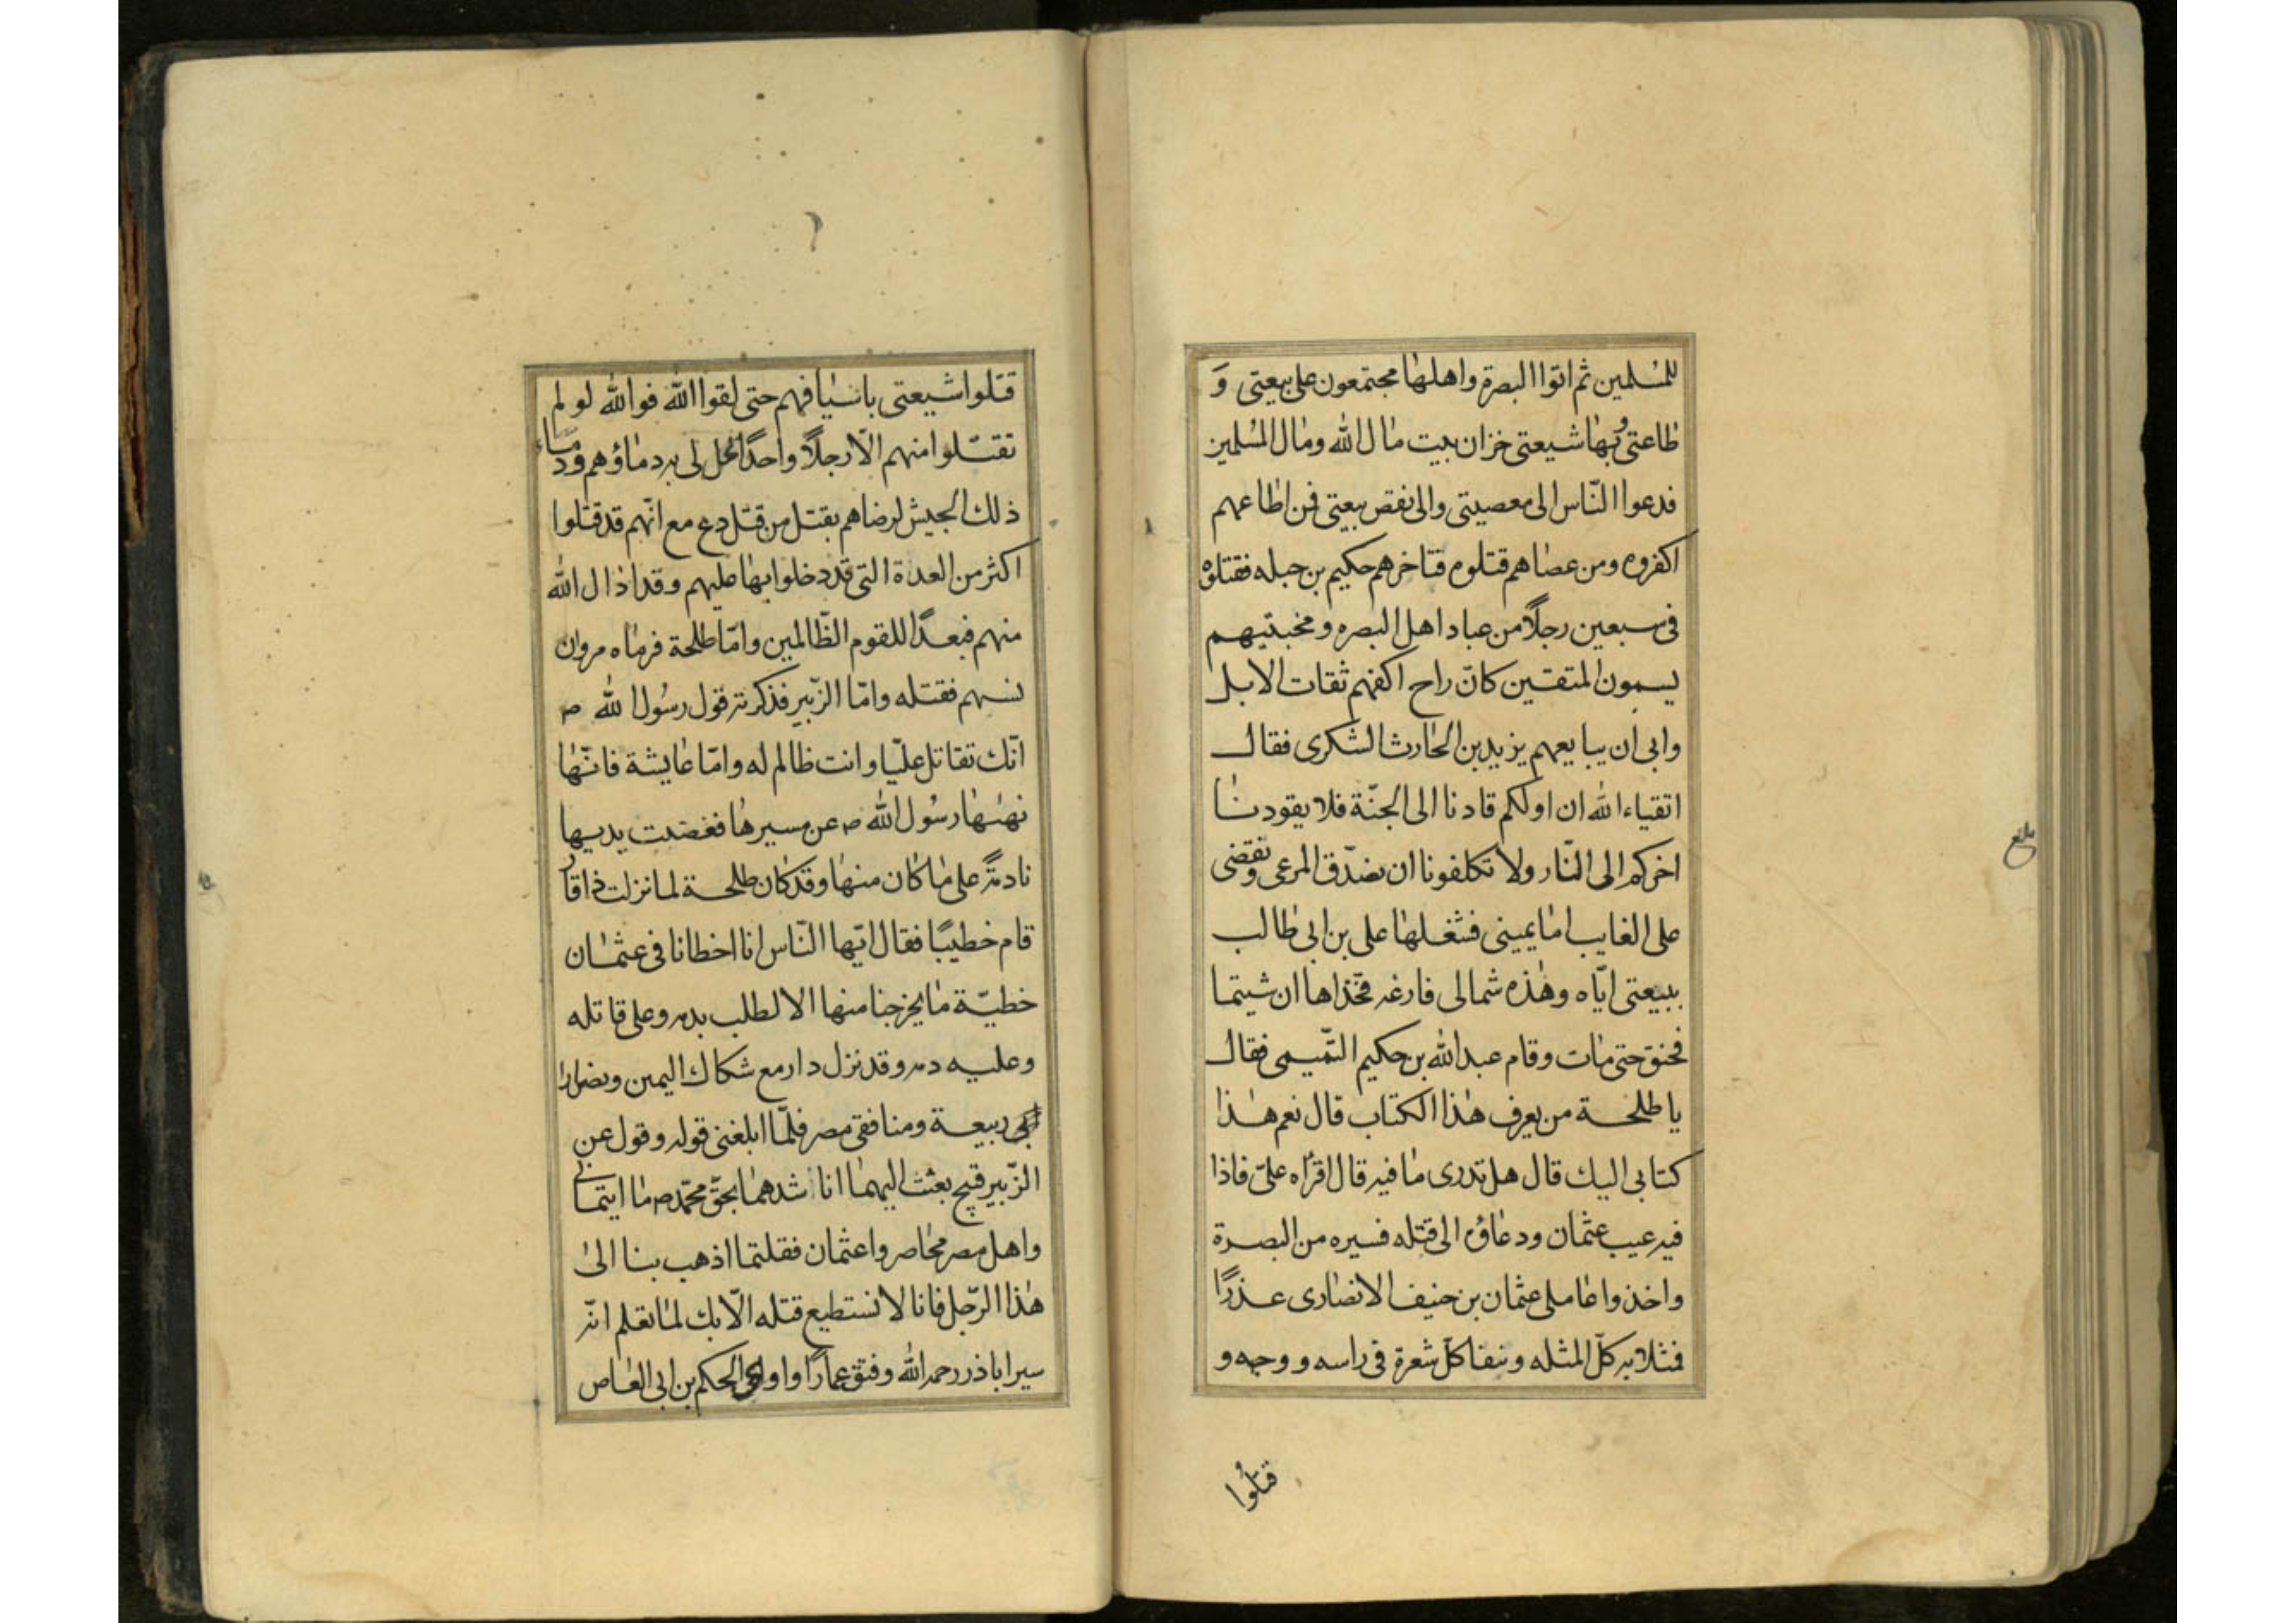 للمسلمين ثم اتوا البصرة واهلها مجتمعون على بيعتى وَ
طاعتى وبها شيعتى خزان بيت مال الله ومال المسلمين
فدعوا الناس الى معصيتى والى نقص بيعتى فمن اطاعهم
اكفروه ومن عصاهم قتلوه فتاخرهم حكيم بن جبله فقتلوه
فى سبعين رجلاً من عباد اهل البصره ومخبتيهم
يسمون المتقين كانّ راح اكفهم ثقات الابل
وابى ان يبايعهم يزيد بن الحارث الشكرى فقال
اتقياء الله ان اولكم قادنا الى الجنّة فلا يقودنا
اخركم الى النّار ولا تكلفونا ان نصدّق المدعى ونقضى
على الغايب اما يمينى فشغلها على بن ابى طالب
ببيعتى ايّاه وهذه شمالى فارغه فخذاها ان شيتما
فخنق حتى مات وقام عبد الله بن حكيم التّميمى فقال
يا طلحة من يعرف هذا الكتاب قال نعم هذا
كتابى اليك قال هل تدرى ما فيه قال اقراه علىّ فاذا
فيه عيب عثمان ودعاؤه الى قتله فسيره من البصرة
واخذوا عاملى عثمان بن حنيف الانصارى عذرًا
فمثلا به كلّ المثله ونتفا كلّ شعرة فى راسه ووجهه و
قتلوا
بلغ
قتلوا شيعتى باسيافهم حتى لقوا الله فوالله لو لم
تقتّلوا منهم الّا رجلاً واحدًا لحل لى به دماؤهم ودماء
ذلك الجيش لرضاهم بقتل من قتل دع مع انّهم قد قتلوا
اكثر من العدة التى قد دخلوا بها عليهم وقد اذال الله
منهم فبعدًا للقوم الظّالمين وامّا طلحة فرماه مروان
بسهم فقتله وامّا الزّبير فذكرته قول رسُول الله ص
انّك تقاتل عليّا وانت ظالم له وامّا عايشة فانّها
نهىها رسُول الله ص عن مسيرها فعضت يديها
نادمةً على ما كان منها وقد كان طلحة لما نزلت ذاقار
قام خطيبًا فقال ايّها النّاس انا اخطانا فى عثمان
خطيّة ما يخرجنا منها الا لطلب بدمه وعلى قاتله
وعليه دمه وقد نزل دار مع شكاك اليمن ونصارا
ربيعة ومنافقى مصر فلمّا ابلغنى قوله وقول عن
الزّبير قبيح بعثت اليهما اناشدهما بحقّ محمّد ص ما ايتمانى
واهل مصر محاصروا عثمان فقلتما اذهب بنا الىٰ
هذا الرّجل فانا لا نستطيع قتله الّا بك لما تعلم انّه
سير اباذر رحمه الله وفتق عمارًا واوى الحكم بن ابى العاص